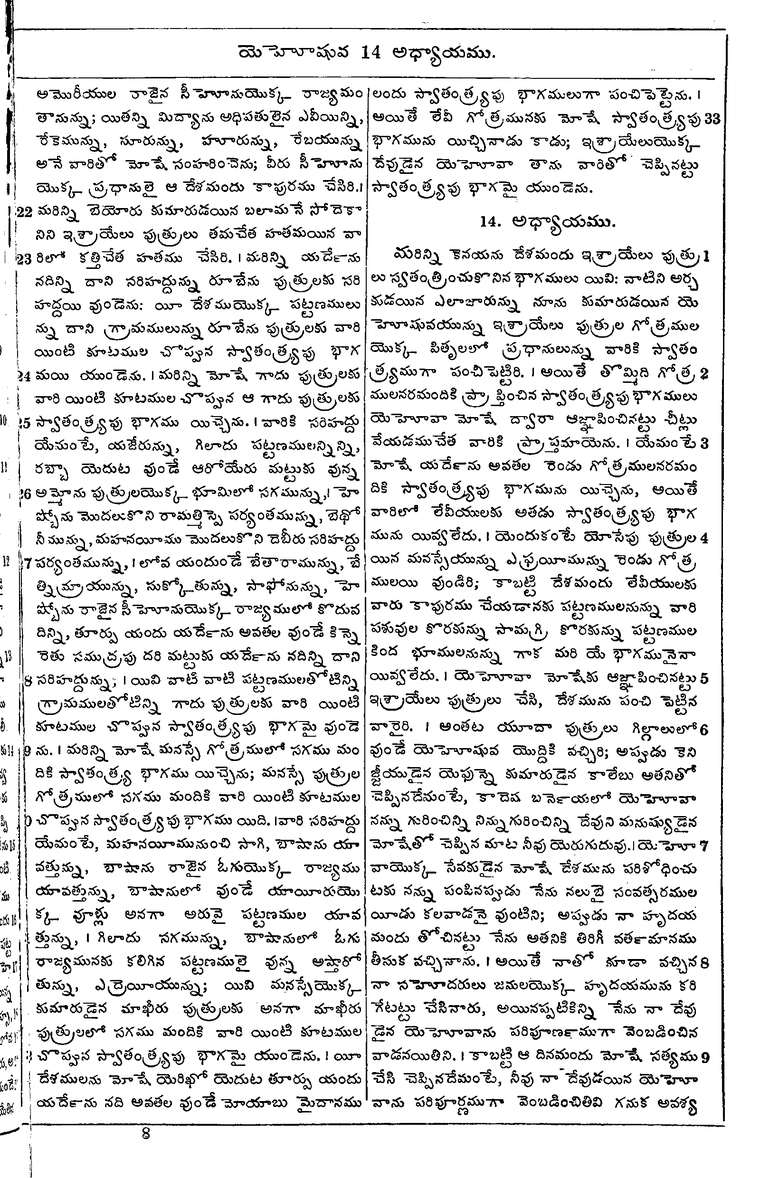 యెహోషువ 14 అధ్యాయము.
అమొరీయుల రాజైన సీహోనుయొక్క రాజ్యమం
తానున్ను; యితన్ని మిద్యాను అధిపతులైన ఎవీయిన్ని,
రేకెమున్ను, సూరున్ను, హూరున్ను, రేబయున్ను
అనే వారితో మోషే సంహరించెను; వీరు సీహోను
యొక్క ప్రధానులై ఆ దేశమందు కాపురము చేసిరి.।
22 మరిన్ని బెయోరు కుమారుడయిన బలామనే సోదెకా
నిని ఇశ్రాయేలు పుత్రులు తమచేత హతమయిన వా
23 రిలో కత్తిచేత హతము చేసిరి. । మరిన్ని యర్దెను
నదిన్ని దాని సరిహద్దున్ను రూబేను పుత్రులకు సరి
హద్దయి వుండెను: యీ దేశముయొక్క పట్టణములు
న్ను దాని గ్రామములున్ను రూబేను పుత్రులకు వారి
యింటి కూటముల చొప్పున స్వాతంత్ర్యపు భాగ
24 మయి యుండెను. । మరిన్ని మోషే గాదు పుత్రులకు
వారి యింటి కూటముల చొప్పున ఆ గాదు పుత్రులకు
25 స్వాతంత్ర్యపు భాగము యిచ్చెను. । వారికి సరిహద్దు
యేమంటే, యజేరున్ను, గిలాదు పట్టణములన్నిన్ని,
రబ్బా యెదుట వుండే ఆరోయేరు మట్టుకు వున్న
26 అమ్మోను పుత్రులయొక్క భూమిలో సగమున్ను,। హె
ష్బోను మొదలుకొని రామత్మిస్పె పర్యంతమున్ను, బెథో
నీమున్ను, మహనయీము మొదలుకొని దెబీరు సరిహద్దు
27 పర్యంతమున్ను, । లోవ యందుండే బేతారామున్ను, బే
త్నిమ్రాయున్ను, సుక్కోతున్ను, సాఫోనున్ను, హె
ష్బోను రాజైన సీహోనుయొక్క రాజ్యములో కొదువ
దిన్ని, తూర్పు యందు యర్దెను అవతల వుండే కిన్నె
రెతు సముద్రపు దరి మట్టుకు యర్దెను నదిన్ని దాని
8 సరిహద్దున్ను; । యివి వాటి వాటి పట్టణములతోటిన్ని
గ్రామములతోటిన్ని గాదు పుత్రులకు వారి యింటి
కూటముల చొప్పున స్వాతంత్ర్యపు భాగమై వుండె
9 ను. । మరిన్ని మోషే మనస్సే గోత్రములో సగము మం
దికి స్వాతంత్ర్య భాగము యిచ్చెను; మనస్సే పుత్రుల
గోత్రములో సగము మందికి వారి యింటి కూటముల
0 చొప్పున స్వాతంత్ర్యపు భాగము యిది. ।వారి సరిహద్దు
యేమంటే, మహనయీమునుంచి సాగి, బాషాను యా
వత్తున్ను, బాషాను రాజైన ఓగుయొక్క రాజ్యము
యావత్తున్ను, బాషానులో వుండే యాయీరుయొ
క్క వూళ్లు అనగా అరువై పట్టణముల యావ
త్తున్ను, । గిలాదు సగమున్ను, బాషానులో ఓగు
రాజ్యమునకు కలిగిన పట్టణములై వున్న అష్తారో
తున్ను, ఎద్రెయీయున్ను; యివి మనస్సేయొక్క
కుమారుడైన మాఖీరు పుత్రులకు అనగా మాఖీరు
పుత్రులలో సగము మందికి వారి యింటి కూటముల
చొప్పున స్వాతంత్ర్యపు భాగమై యుండెను. । యీ
దేశములను మోషే యెరిఖో యెదుట తూర్పు యందు
యర్దెను నది అవతల వుండే మోయాబు మైదానము
లందు స్వాతంత్ర్యపు భాగములుగా పంచిపెట్టెను. ।
అయితే లేవీ గోత్రమునకు మోషే స్వాతంత్ర్యపు 33
భాగమును యిచ్చినాడు కాడు; ఇశ్రాయేలుయొక్క
దేవుడైన యెహోవా తాను వారితో చెప్పినట్టు
స్వాతంత్ర్యపు భాగమై యుండెను.
14. అధ్యాయము.
మరిన్ని కెనయను దేశమందు ఇశ్రాయేలు పుత్రు 1
లు స్వతంత్రించుకొనిన భాగములు యివి: వాటిని అర్చ
కుడయిన ఎలాజారున్ను నూను కుమారుడయిన యె
హోషువయున్ను ఇశ్రాయేలు పుత్రుల గోత్రముల
యొక్క పితృలలో ప్రధానులున్ను వారికి స్వాతం
త్ర్యముగా పంచిపెట్టిరి. । అయితే తొమ్మిది గోత్ర 2
ములనరమందికి ప్రాప్తించిన స్వాతంత్ర్యపు భాగములు
యెహోవా మోషే ద్వారా ఆజ్ఞాపించినట్టు చీట్లు
వేయడముచేత వారికి ప్రాప్తమాయెను. । యేమంటే 3
మోషే యర్దెను అవతల రెండు గోత్రములనరమం
దికి స్వాతంత్ర్యపు భాగమును యిచ్చెను, అయితే
వారిలో లేవీయులకు అతడు స్వాతంత్ర్యపు భాగ
మును యివ్వలేదు. । యెందుకంటే యోసేపు పుత్రుల 4
యిన మనస్సేయున్ను ఎఫ్రయీమున్ను రెండు గోత్ర
ములయి వుండిరి; కాబట్టి దేశమందు లేవీయులకు
వారు కాపురము చేయడానకు పట్టణములనున్ను వారి
పశువుల కొరకున్ను సామగ్రి కొరకున్ను పట్టణముల
కింద భూములనున్ను గాక మరి యే భాగమునైనా
యివ్వలేదు. । యెహోవా మోషేకు ఆజ్ఞాపించినట్టు 5
ఇశ్రాయేలు పుత్రులు చేసి, దేశమును పంచి పెట్టిన
వారైరి. । అంతట యూదా పుత్రులు గిల్గాలులో 6
వుండే యెహోషువ యొద్దికి వచ్చిరి; అప్పుడు కెని
జ్జీయుడైన యెఫున్నె కుమారుడైన కాలేబు అతనితో
చెప్పినదేమంటే, కాదెష బర్నెయలో యెహోవా
నన్ను గురించిన్ని నిన్నుగురించిన్ని దేవుని మనుష్యుడైన
మోషేతో చెప్పిన మాట నీవు యెరుగుదువు.। యెహో 7
వాయొక్క సేవకుడైన మోషే దేశమును పరిశోధించు
టకు నన్ను పంపినప్పుడు నేను నలుబై సంవత్సరముల
యీడు కలవాడనై వుంటిని; అప్పుడు నా హృదయ
మందు తోచినట్టు నేను అతనికి తిరిగీ వర్తమానము
తీసుక వచ్చినాను. । అయితే నాతో కూడా వచ్చిన 8
నా సహోదరులు జనులయొక్క హృదయమును కరి
గేటట్టు చేసినారు, అయినప్పటికిన్ని నేను నా దేవు
డైన యెహోవాను పరిపూర్ణముగా వెంబడించిన
వాడనయితిని. । కాబట్టి ఆ దినమందు మోషే సత్యము 9
చేసి చెప్పినదేమంటే, నీవు నా దేవుడయిన యెహో
వాను పరిపూర్ణముగా వెంబడించితివి గనుక అవశ్య
8